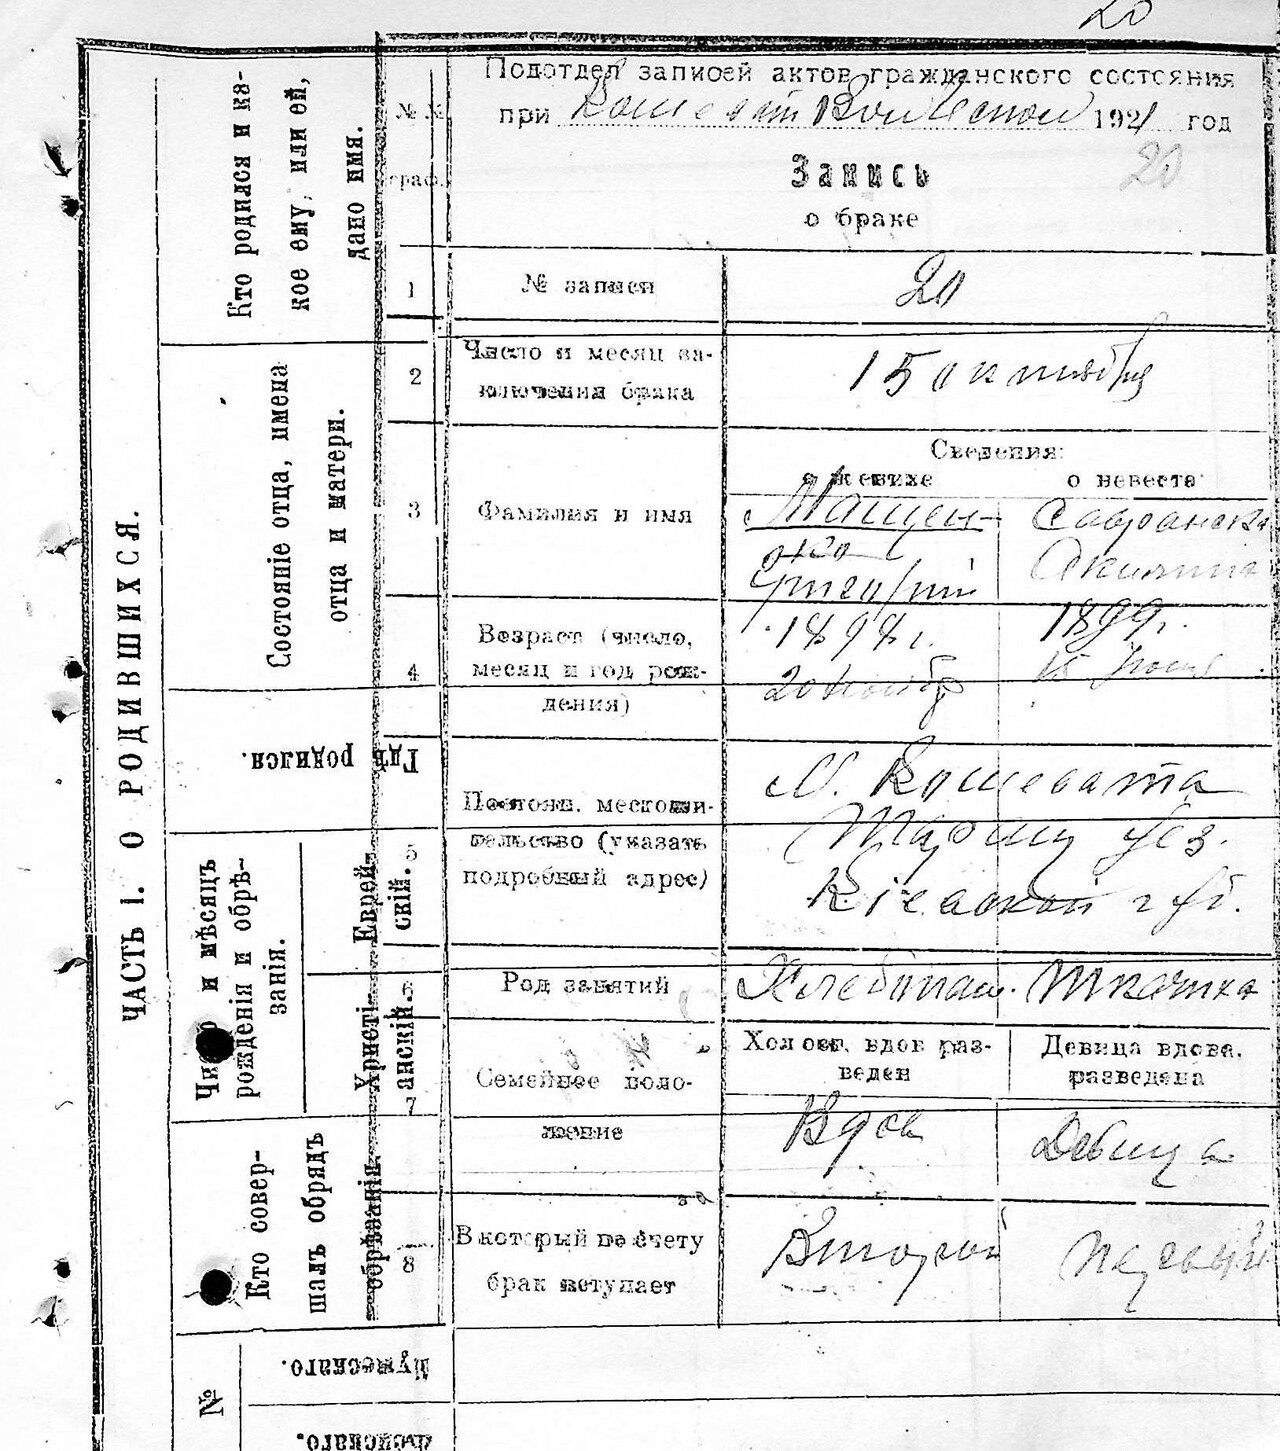 20
Подотдел записей актов гражданского состояния
при Кошеват Волисном 1921 год
Запись 20
о браке
№ №
граф.
1 № записи 20
2 Число и месяц за-
ключения брака 15 октября
Сведения:
о женихе о невесте
3 Фамилия и имя Мащен-
ко
Григорий
Савранска
Акилина
4 Возраст (число,
месяц и год рож-
дения)
1898 г.
20 ноябр
1899 г.
15
5 Постоян. местожи-
тельство (указать
подробный адрес)
М. Кошевата
Таращ уез.
Кіевской губ.
Род занятий Хлебопаш. Ткачка
7 Семейное поло-
жение
Холост. вдов раз-
веден
Девица вдова.
разведена
Вдов Девица
8 В который по счету
брак вступает
Второй Первый
ЧАСТЬ I. О РОДИВШИХСЯ.
Кто родился и ка-
кое ему, или ей,
дано имя.
Состояніе отца, имена
отца и матери.
Гдѣ родился.
и мѣсяцъ
рожденія и обрѣ-
занія.
Еврей-
скій.
Христі-
анскій.
Кто совер-
шалъ обрядъ
обрѣзанія.
№
Мужескаго.
Женскаго.